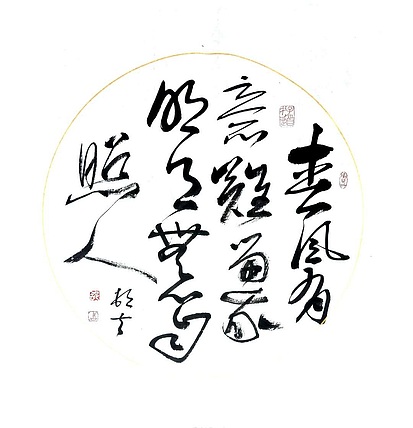 春風有
意難留客
明月無心自
照人